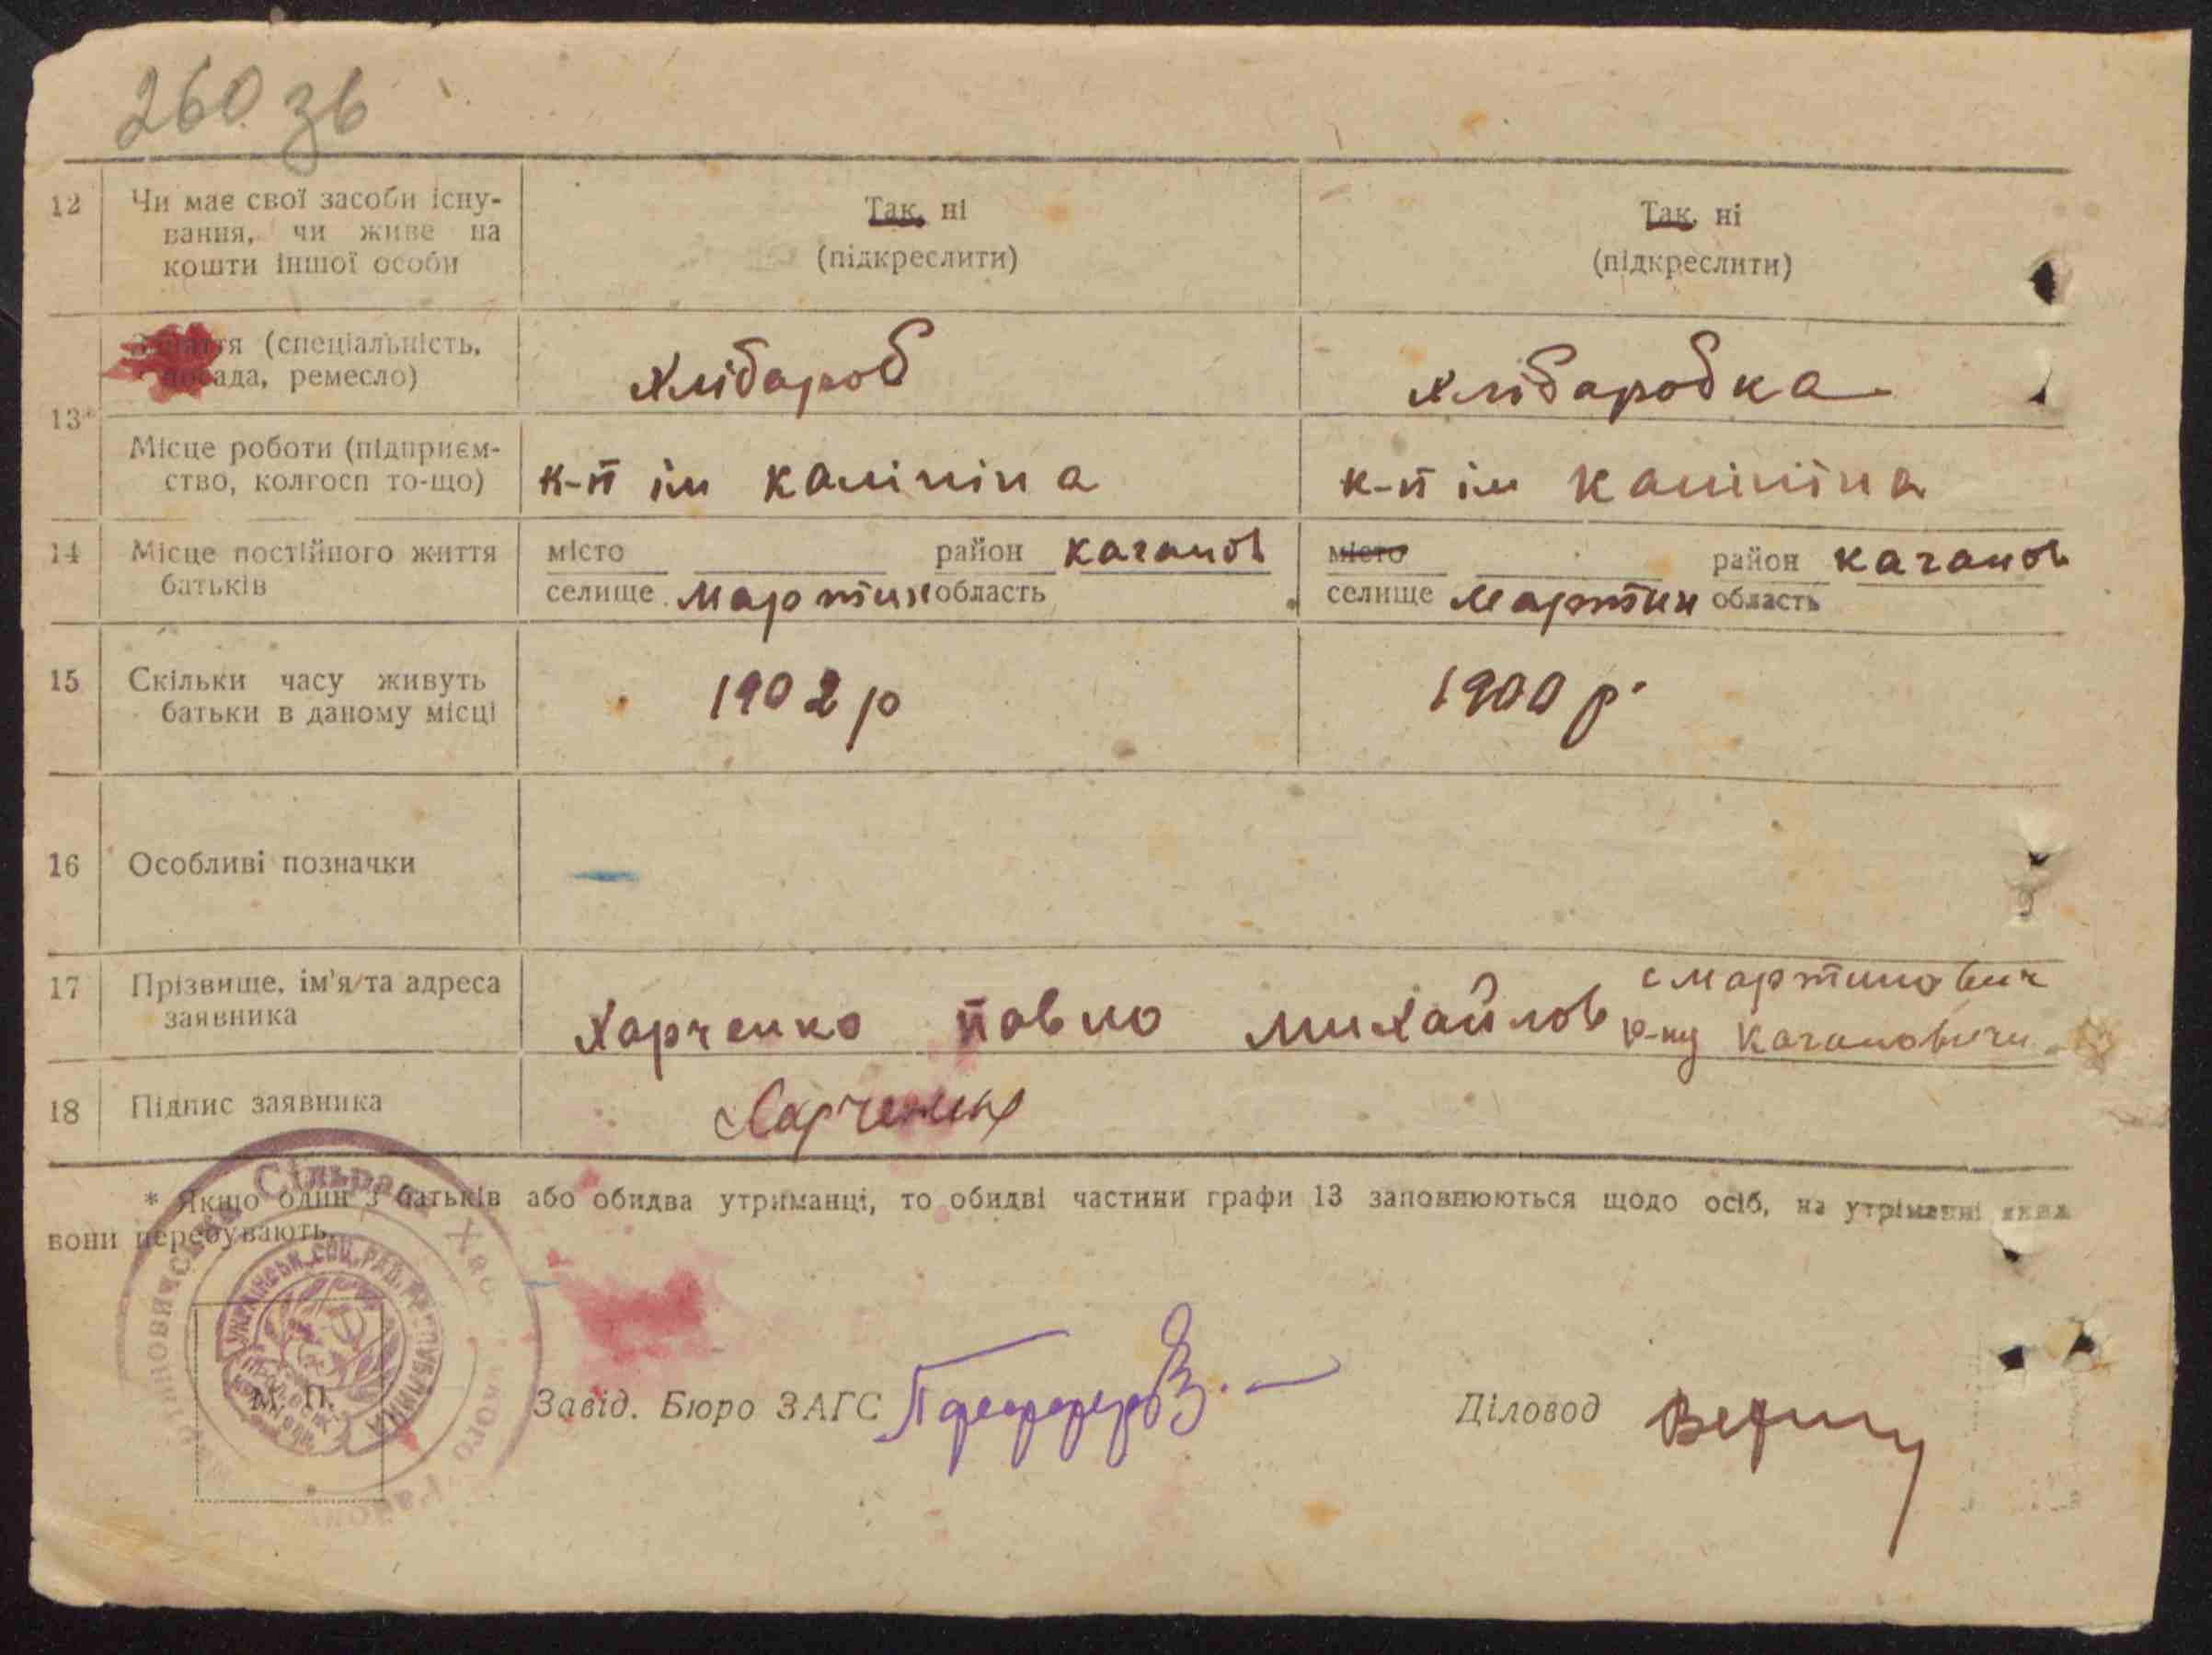 260 зв
12 Чи має свої засоби існу-
вання, чи живе на
кошти іншої особи
Так, ні
(підкреслити)
Так, ні
(підкреслити)
13*
Заняття (спеціальність,
посада, ремесло)
хлібароб
хлібаробка
Місце роботи (підприєм-
ство, колгосп то-що)
к-п ім калініна
к-п ім калініна
14 Місце постійного життя
батьків
місто район каганов
селище Мартин область
місто район каганов
селище Мартин область
15 Скільки часу живуть
батьки в даному місці
1902 р
1900 р.
16 Особливі позначки
17 Прізвище, ім'я та адреса
заявника
с Мартинович
Харченко павло михайлов р-ну Кагановичи
18 Підпис заявника
Харченко
* Якщо один з батьків або обидва утриманці, то обидві частини графи 13 заповнюються щодо осіб, на утриманні яких
вони перебувають.
Сільрада
УКРАЇНСЬК. СОЦ. РАД. РЕСПУБЛИКА
М. П.
Завід. Бюро ЗАГС
Діловод